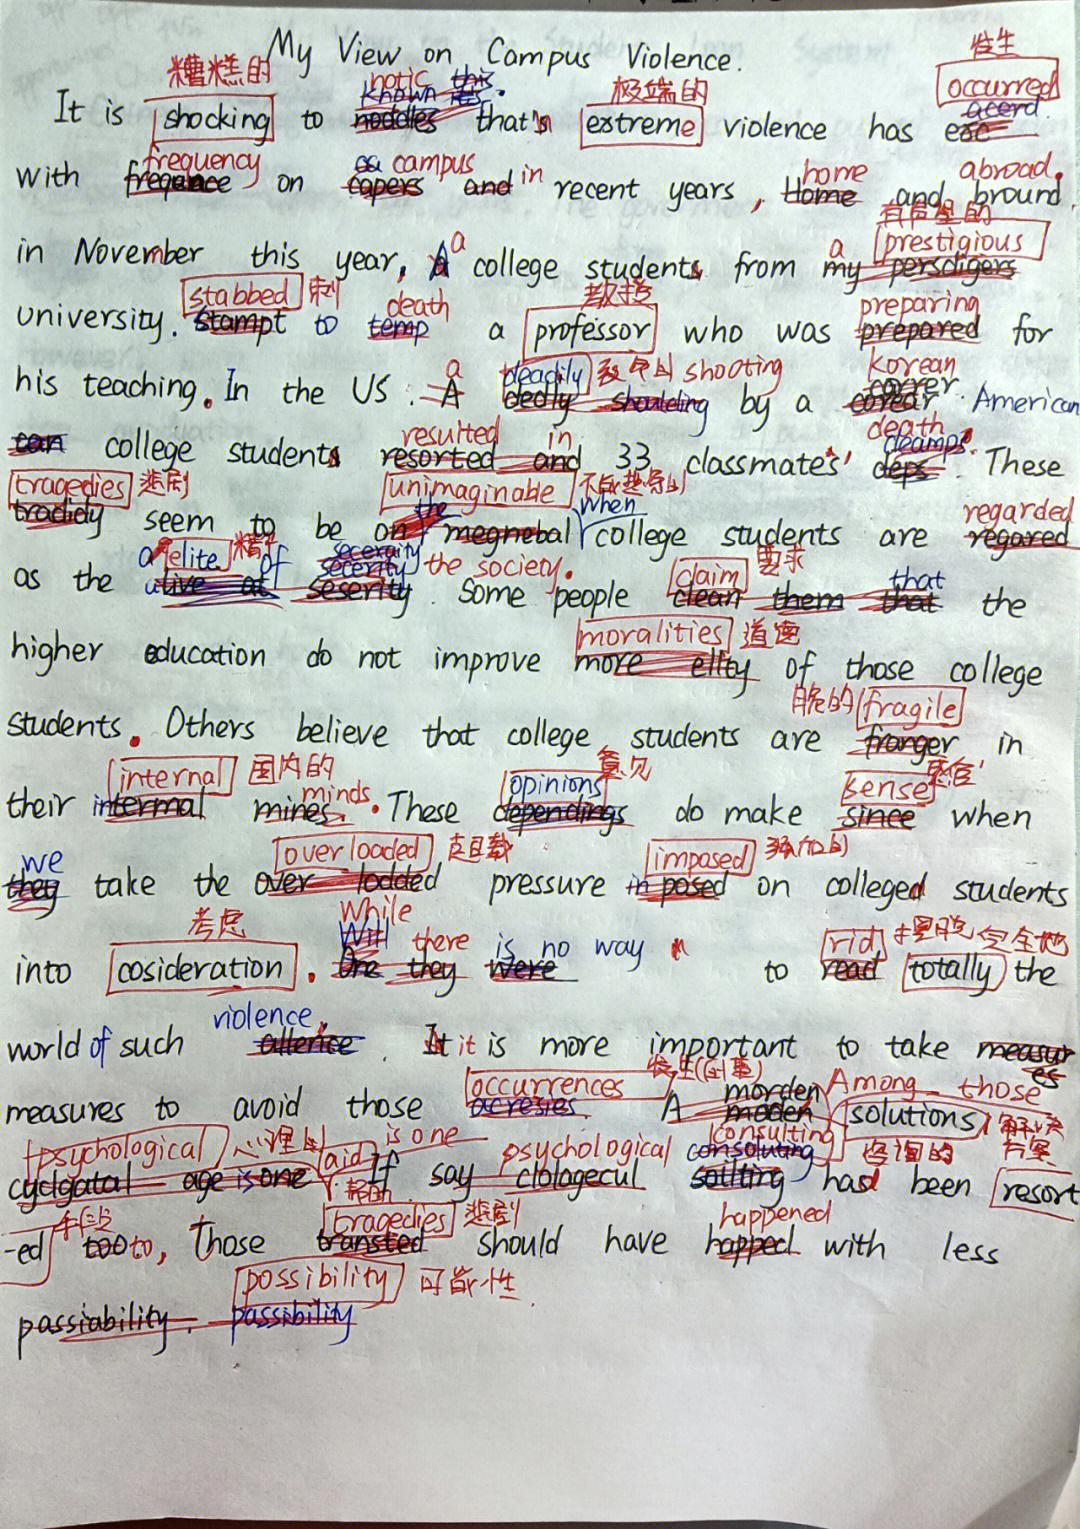 My View on Campus Violence.
糟糕的 notic this. 极端的 发生
It is shocking to noddles known that's extreme violence has occurred
frequency campus home abroad.
with freqance on capers and in recent years, Home and bround
a a 有声望的 prestigious
in November this year, A college students from my persdigers
stabbed 刺 death 教授 preparing
university. stampt to temp a professor who was prepared for
a deadily 致命的 shooting Korean
his teaching. In the US : A dedly shoulding by a American
resulted in death
can college students resorted and 33 classmate's' deps. These
tragedies 悲剧 unimaginable when regarded
tradidy seem to be on the megnebal college students are regared
a elite of secerity the society. claim 要求 that
as the seserity. Some people clean them that the
moralities 道德
higher education do not improve more ellty of those college
脆的 fragile
students. Others believe that college students are franger in
internal 国内的 minds opinions 意见 sense
their intermal mines. These dependings do make since when
we overloaded 超载 imposed 强加的
they take the over lodded pressure in posed on colleged students
考虑 while Will there is no way rid 摆脱 完全地
into cosideration. One they were to read totally the
violence,
world of such allence. It it is more important to take measures
occurrences 发生(的事) morden Among those
measures to avoid those acresies. A moden solutions 解决方案
psychological 心理的 aid is one psychological consulting 咨询的
cyclgatal age is one If say clologecul soilting had been resort
手段 帮助 tragedies 悲剧 happened
-ed too to, Those transted should have happed with less
possibility 可能性.
passiability. passibility